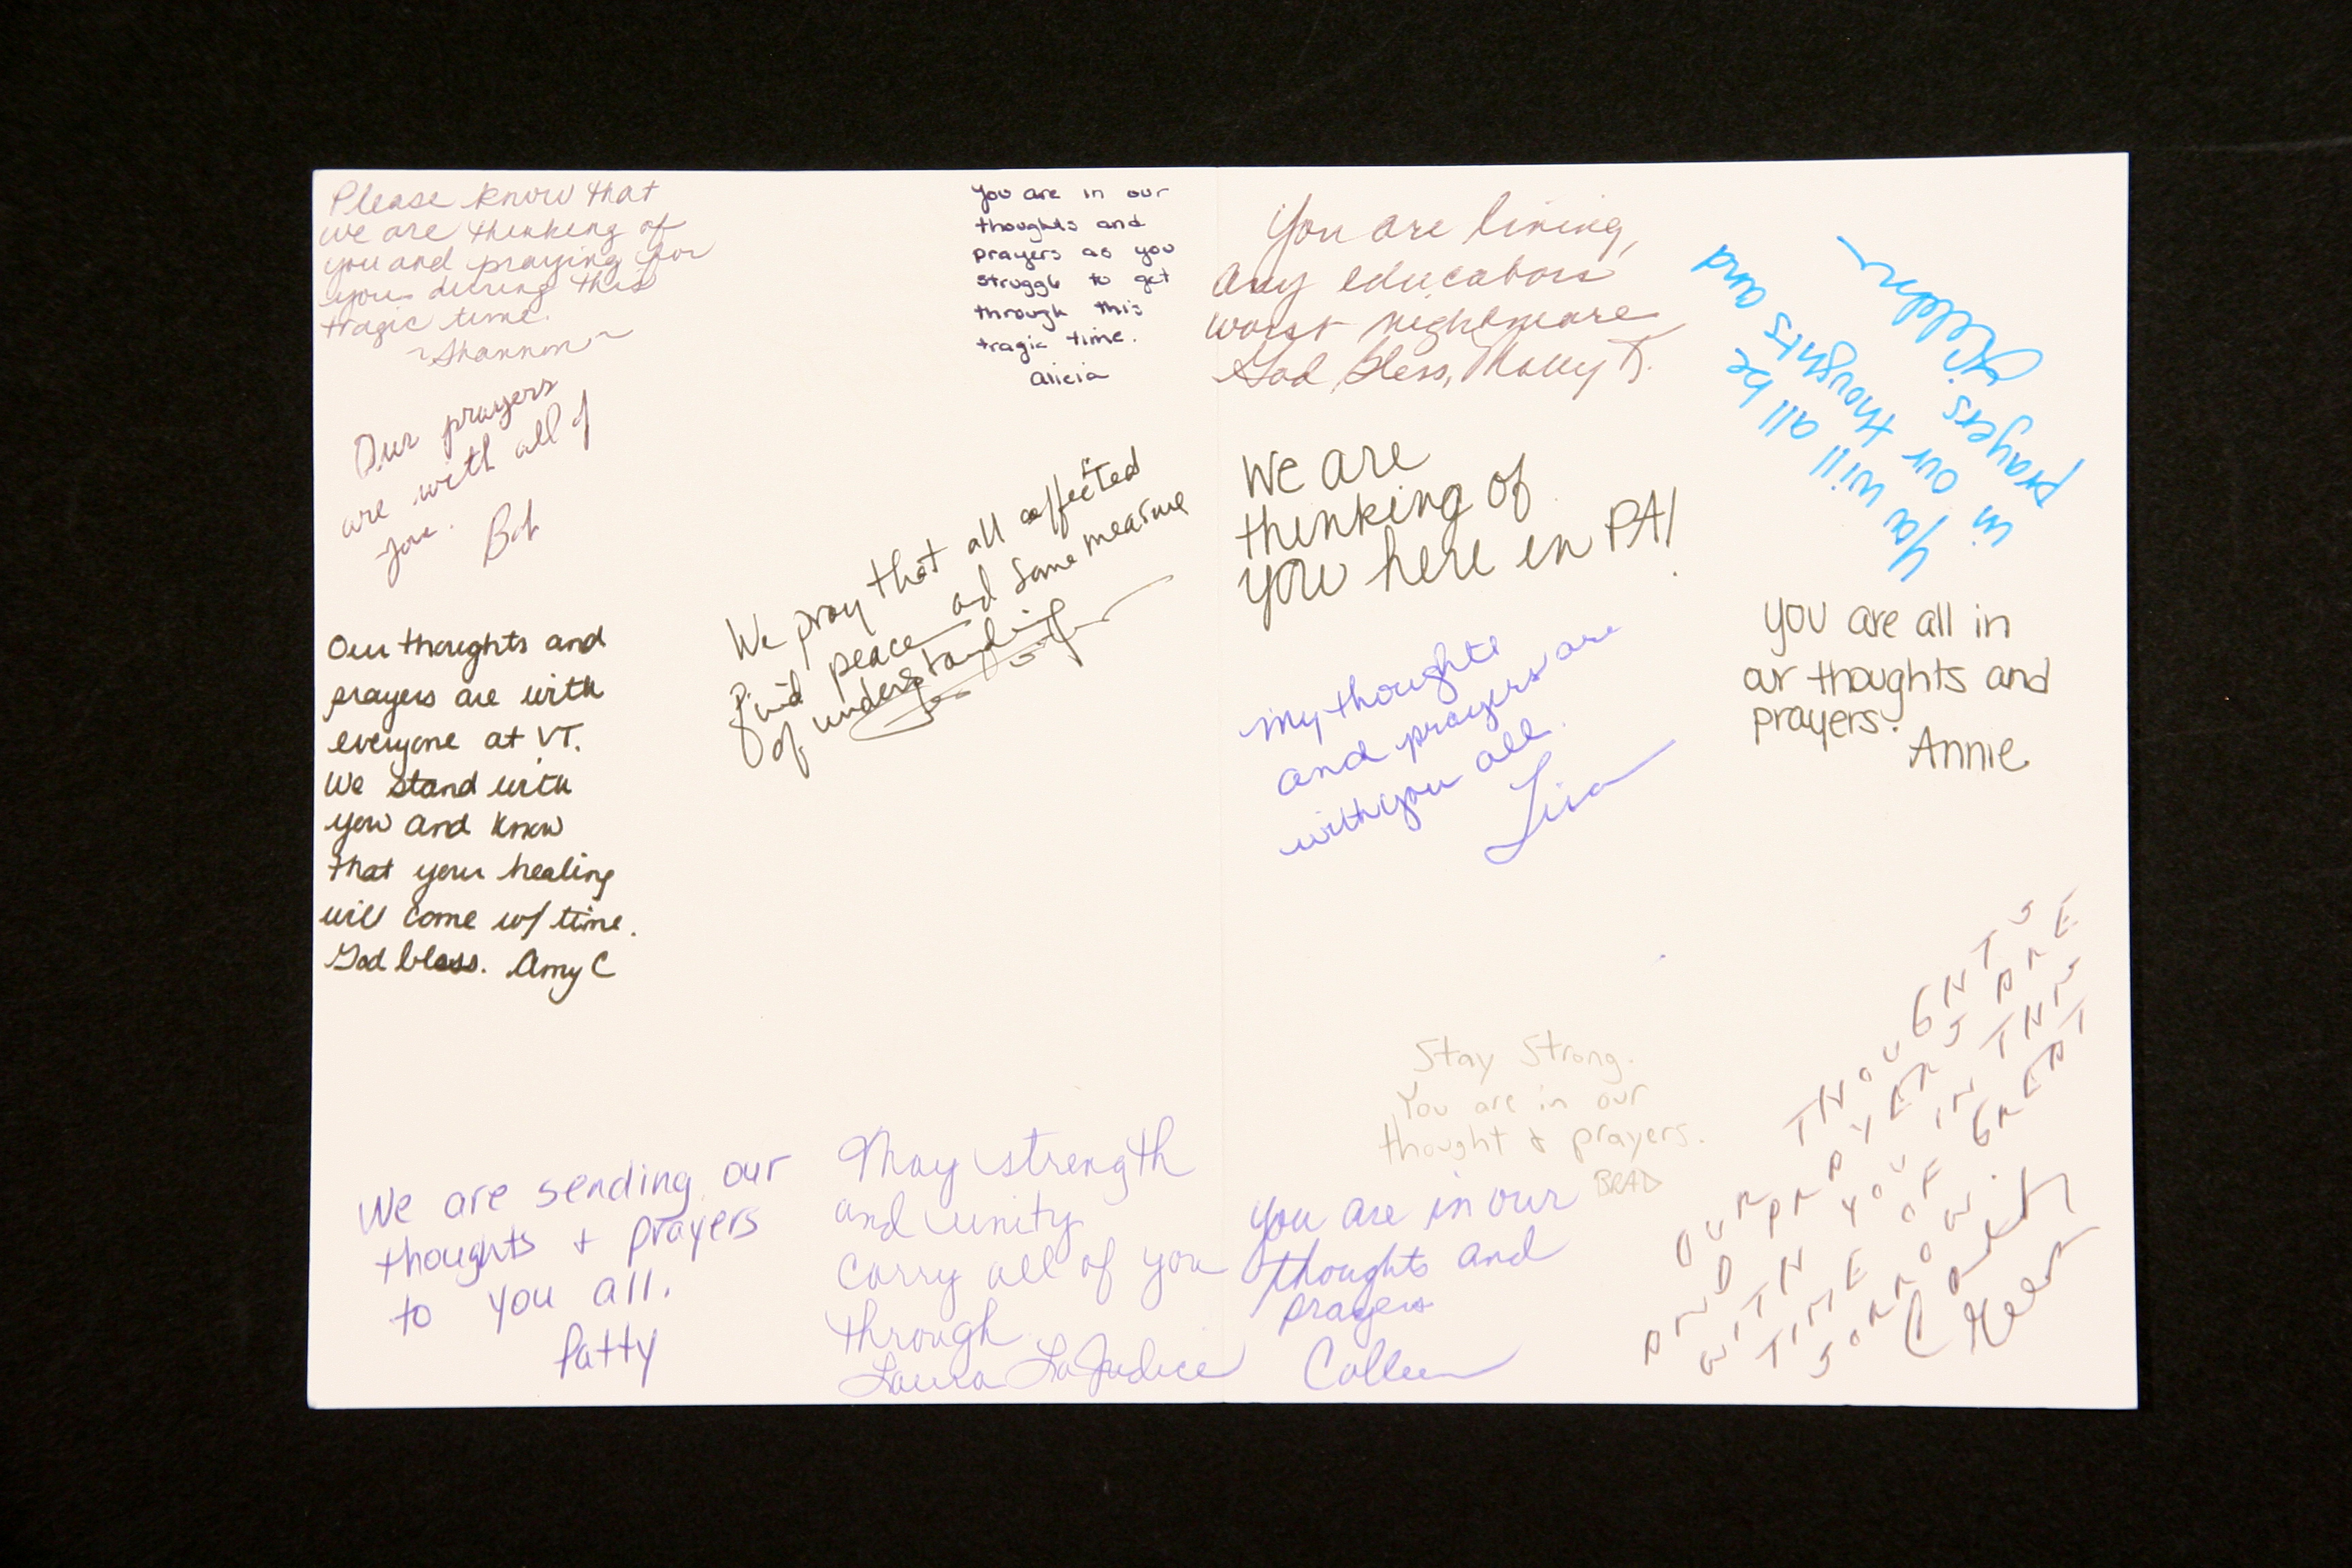 Please know that
we are thinking of
you and praying for
you during this
tragic time.
~Shannon~
Our prayers
are with all of
you.
Bob
Our thoughts and
prayers are with
everyone at VT.
We stand with
you and know
that your healing
will come w/ time.
God bless. Amy C
We are sending our
thoughts & prayers
to you all.
Patty
You are in our
thoughts and
prayers as you
struggle to get
through this
tragic time.
Alicia
We pray that all affected
find peace and some measure
of understanding
May strength
and unity
carry all of you
through
Laura LoJudice
You are living,
any educators
worst nightmare
God bless, Molly D.
We are
thinking of
you here in PA!
My thoughts
and prayers are
with you all.
Lisa
Stay Strong.
You are in our
thought & prayers.
BRAD
You are in our
thoughts and
prayers
Colleen
You will all be
in our thoughts and
prayers
You are all in
our thoughts and
prayers.
Annie
OUR THOUGHTS
AND PRAYERS ARE
WITH YOU IN THIS
TIME OF GREAT
SORROW.